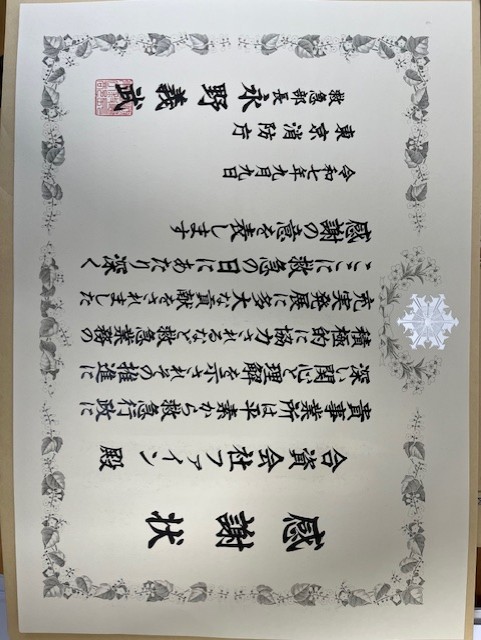 感謝状
合資会社ファイン殿
貴事業所は平素から救急行政に
深い関心と理解を示されその推進に
積極的に協力されるなど救急業務の
充実発展に多大な貢献をされました
ここに救急の日にあたり深く
感謝の意を表します
令和七年九月九日
東京消防庁
救急部長 永野義武